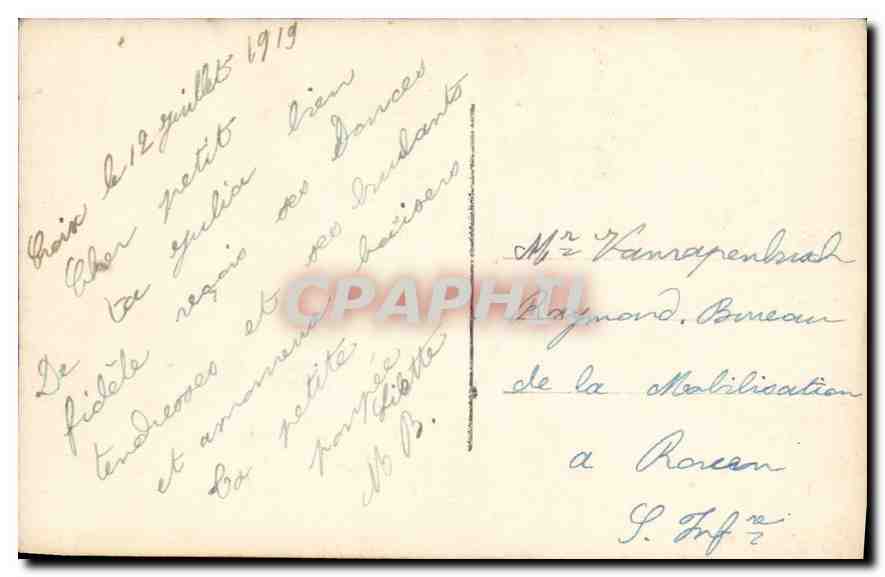 Croix le 12 Juillet 1919
Cher petit
De ta Julia bien
fidèle reçois ses Douces
tendresses et ses brulants
et amoureux baisers
ta petite
poupée
Lilette
M B.
Mr Vanrapenbusch
Raymond. Bureau
de la Mobilisation
a Rouen
S. Infre
CPAPHIL